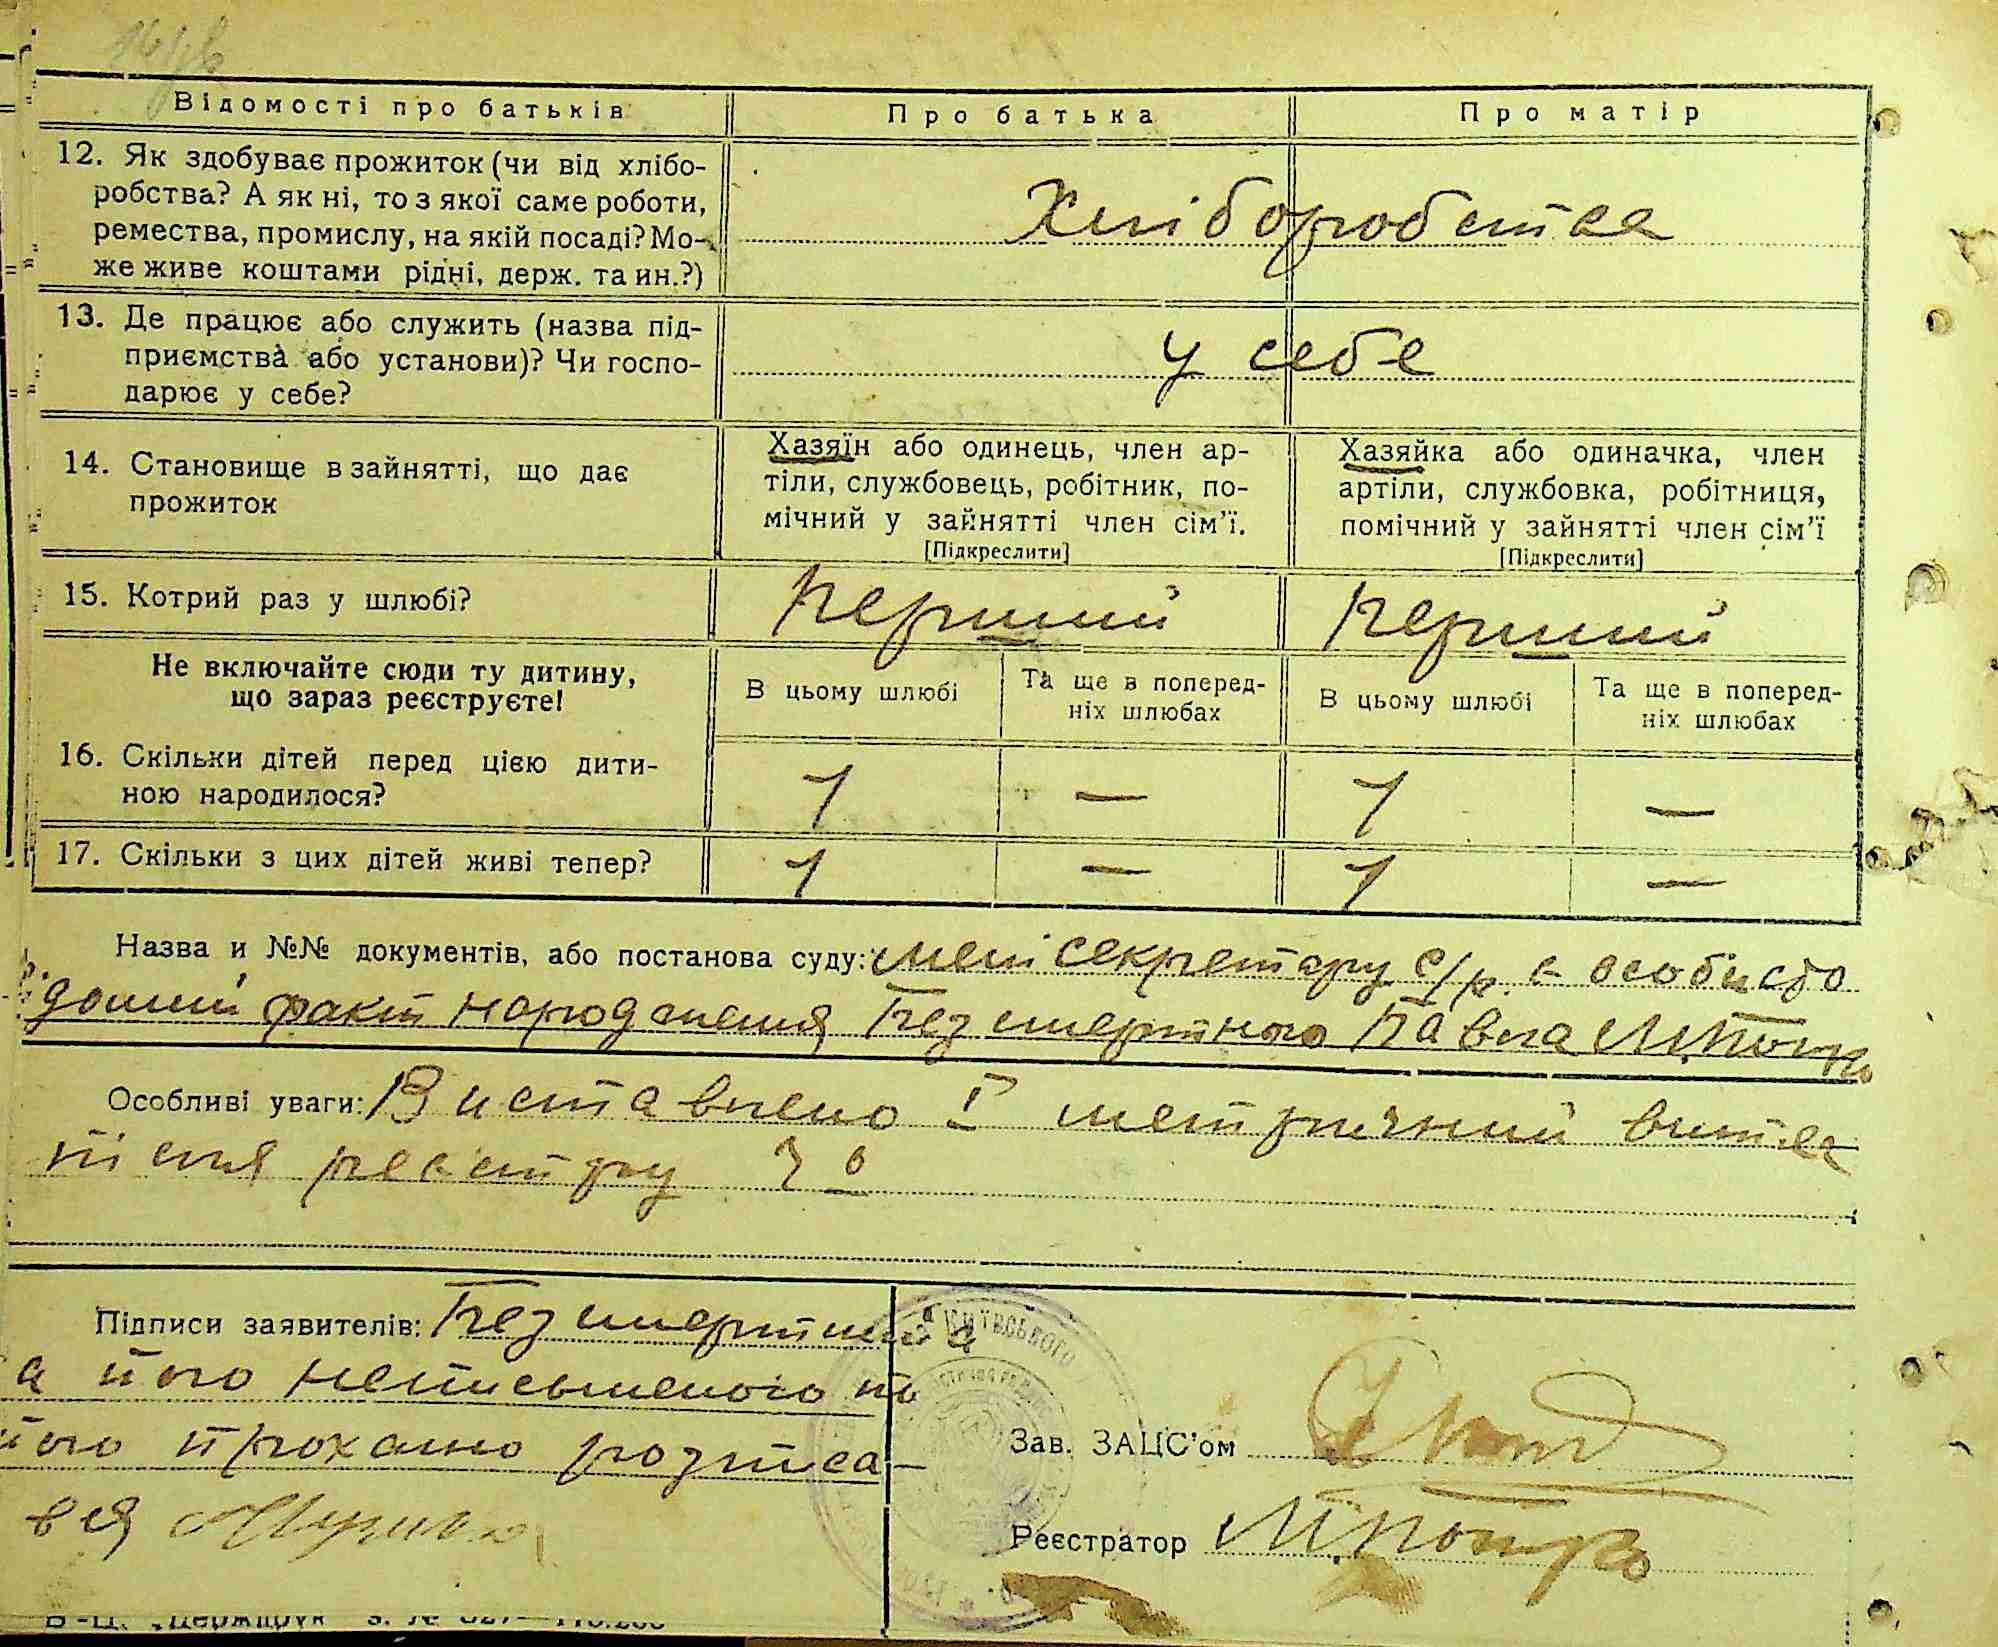 Відомості про батьків Про батька Про матір
12. Як здобуває прожиток (чи від хлібо-
робства? А як ні, то з якої саме роботи,
ремества, промислу, на якій посаді? Мо-
же живе коштами рідні, держ. та ин.?)
Хліборобства
13. Де працює або служить (назва під-
приємства або установи)? Чи госпо-
дарює у себе?
у себе
14. Становище в зайнятті, що дає
прожиток
Хазяїн або одинець, член ар-
тіли, службовець, робітник, по-
мічний у зайнятті член сім'ї.
[Підкреслити]
Хазяйка або одиначка, член
артіли, службовка, робітниця,
помічний у зайнятті член сім'ї
[Підкреслити]
15. Котрий раз у шлюбі? Перший Перший
Не включайте сюди ту дитину,
що зараз реєструєте!
В цьому шлюбі
Та ще в поперед-
ніх шлюбах
В цьому шлюбі
Та ще в поперед-
ніх шлюбах
16. Скільки дітей перед цією дити-
ною народилося?
1 — 1 —
17. Скільки з цих дітей живі тепер? 1 — 1 —
Назва и №№ документів, або постанова суду: мені секретару с/р. є особисто
факт народження Безсмертного Павла
Особливі уваги: Виставлено І метричний витяг
після реєстру
Підписи заявителів: Безсмертний
а його неписьменого по
його проханню розписа-
вся
КИЇВСЬКОГО
Зав. ЗАЦС'ом
Реєстратор